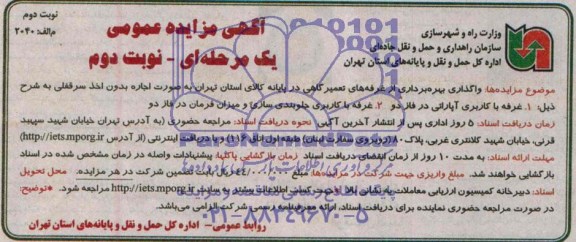 نوبت دوم
م‌الف: ۲۰۴۰
آگهی مزایده عمومی
یک مرحله‌ای - نوبت دوم
وزارت راه و شهرسازی
سازمان راهداری و حمل و نقل جاده‌ای
اداره کل حمل و نقل و پایانه‌های استان تهران
موضوع مزایده‌ها: واگذاری بهره‌برداری از غرفه‌های تعمیرگاهی در پایانه کالای استان تهران به صورت اجاره بدون اخذ سرقفلی به شرح
ذیل: ۱. غرفه با کاربری آپاراتی در فاز دو ۲. غرفه با کاربری جلوبندی سازی و میزان فرمان در فاز دو
زمان دریافت اسناد: ۵ روز اداری پس از انتشار آخرین آگهی. نحوه دریافت اسناد: مراجعه حضوری (به آدرس تهران خیابان شهید سپهبد
قرنی، خیابان شهید کلانتری غربی، پلاک ۸۰ (روبروی سفارت لبنان) طبقه اول اتاق ۱۱۶) و یا دریافت اینترنتی (از آدرس http://iets.mporg.ir)
مهلت ارائه اسناد: به مدت ۱۰ روز از زمان انقضای دریافت اسناد. زمان بازگشایی پاکتها: پیشنهادات واصله در زمان مشخص شده در اسناد
بازگشایی خواهند شد. مبلغ واریزی جهت شرکت در مزایده‌ها: مبلغ ریال بابت تضمین شرکت در هر مزایده. محل تحویل
اسناد: دبیرخانه کمیسیون ارزیابی معاملات به نشانی بالا. جهت کسب اطلاعات بیشتر به سایت http://iets.mporg.ir مراجعه شود. *توضیح:
در صورت مراجعه حضوری نماینده برای دریافت اسناد، ارائه معرفینامه رسمی شرکت الزامی می‌باشد.
روابط عمومی- اداره کل حمل و نقل و پایانه‌های استان تهران
۰۲۱-۸۸۳۴۹۶۷۰-۵